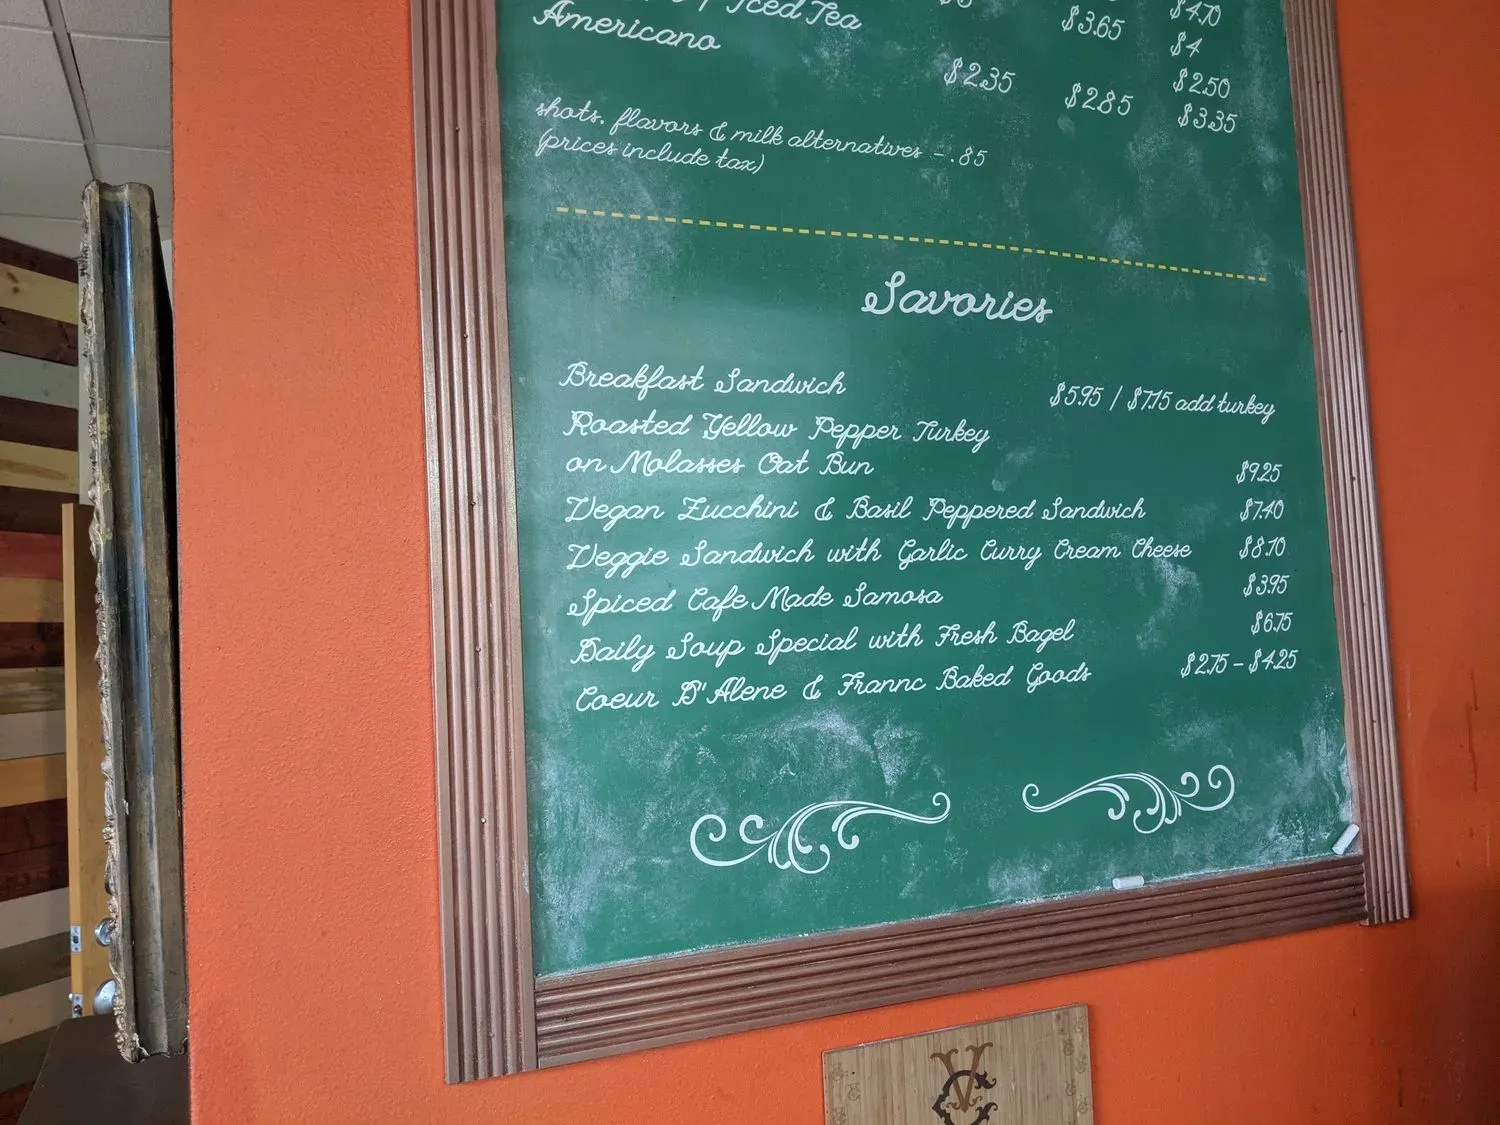 Iced Tea $3.65 $4.70
Americano $4
$2.35 $2.85 $2.50
$3.35
shots, flavors & milk alternatives - .85
(prices include tax)
Savories
Breakfast Sandwich $5.95 / $7.15 add turkey
Roasted Yellow Pepper Turkey
on Molasses Oat Bun $9.25
Vegan Zucchini & Basil Peppered Sandwich $7.40
Veggie Sandwich with Garlic Curry Cream Cheese $8.10
Spiced Cafe Made Samosa $3.95
Daily Soup Special with Fresh Bagel $6.75
Coeur D'Alene & Frannc Baked Goods $2.75 - $4.25